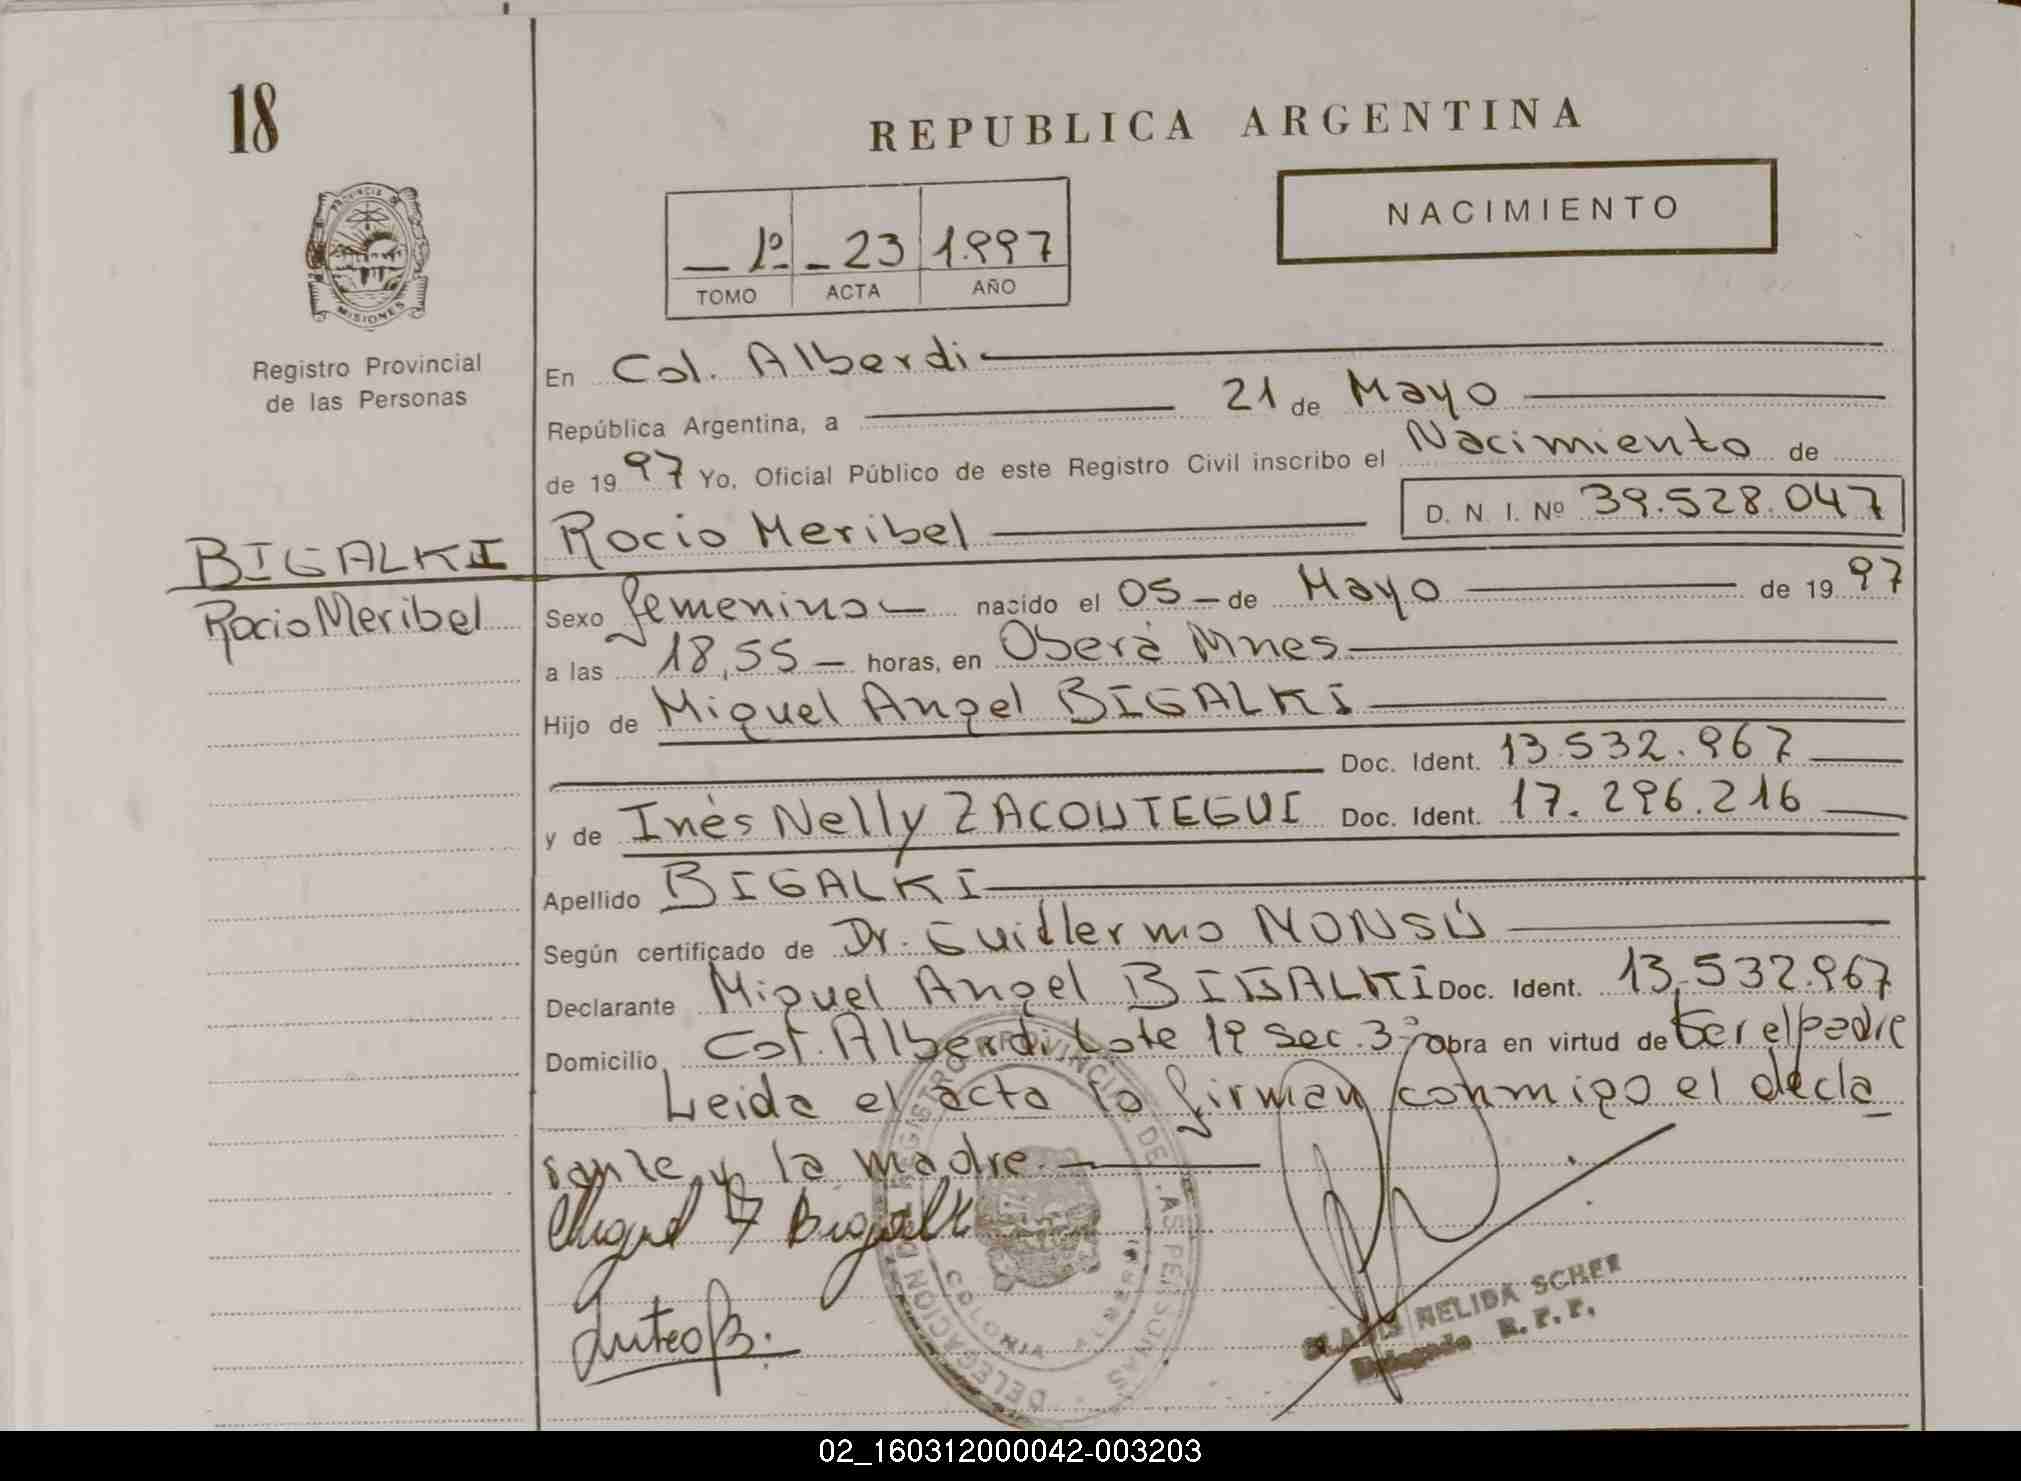 18
REPUBLICA ARGENTINA
NACIMIENTO
1º 23 1.997
TOMO ACTA AÑO
PROVINCIA DE MISIONES
Registro Provincial
de las Personas
En Col. Alberdi
República Argentina, a 21 de Mayo
de 1997 Yo, Oficial Público de este Registro Civil inscribo el Nacimiento de
D. N. I. Nº 39.528.047
BIGALKI
Rocio Meribel
Rocio Meribel
Sexo femenino nacido el 05 de Mayo de 1997
a las 18,55 horas, en Oberá Mnes
Hijo de Miguel Angel BIGALKI
Doc. Ident. 13.532.967
y de Inés Nelly ZACOUTEGUI Doc. Ident. 17.296.216
Apellido BIGALKI
Según certificado de Dr. Guillermo MONSÚ
Declarante Miguel Angel BIGALKI Doc. Ident. 13.532.967
Domicilio Col. Alberdi Lote 19 Sec. 3º obra en virtud de ser el padre
Leida el acta la firman conmigo el decla
rante y la madre.
Miguel A Bigalki
REGISTRO PROVINCIAL DE LAS PERSONAS
DELEGACION
COLONIA ALBERDI
NELIDA SCHER
Delegado R. P. P.
02_160312000042-003203